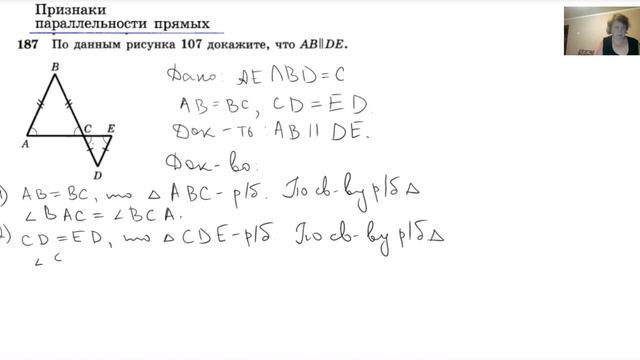 Признаки
параллельности прямых
187 По данным рисунка 107 докажите, что AB∥DE.
B
A
C
E
D
Дано: AE∩BD=C
AB=BC, CD=ED
Док-ть: AB∥DE.
Док-во:
1) AB=BC, то △ABC-р/б. По св-ву р/б△
∠BAC=∠BCA.
2) CD=ED, то △CDE-р/б По св-ву р/б△
∠C